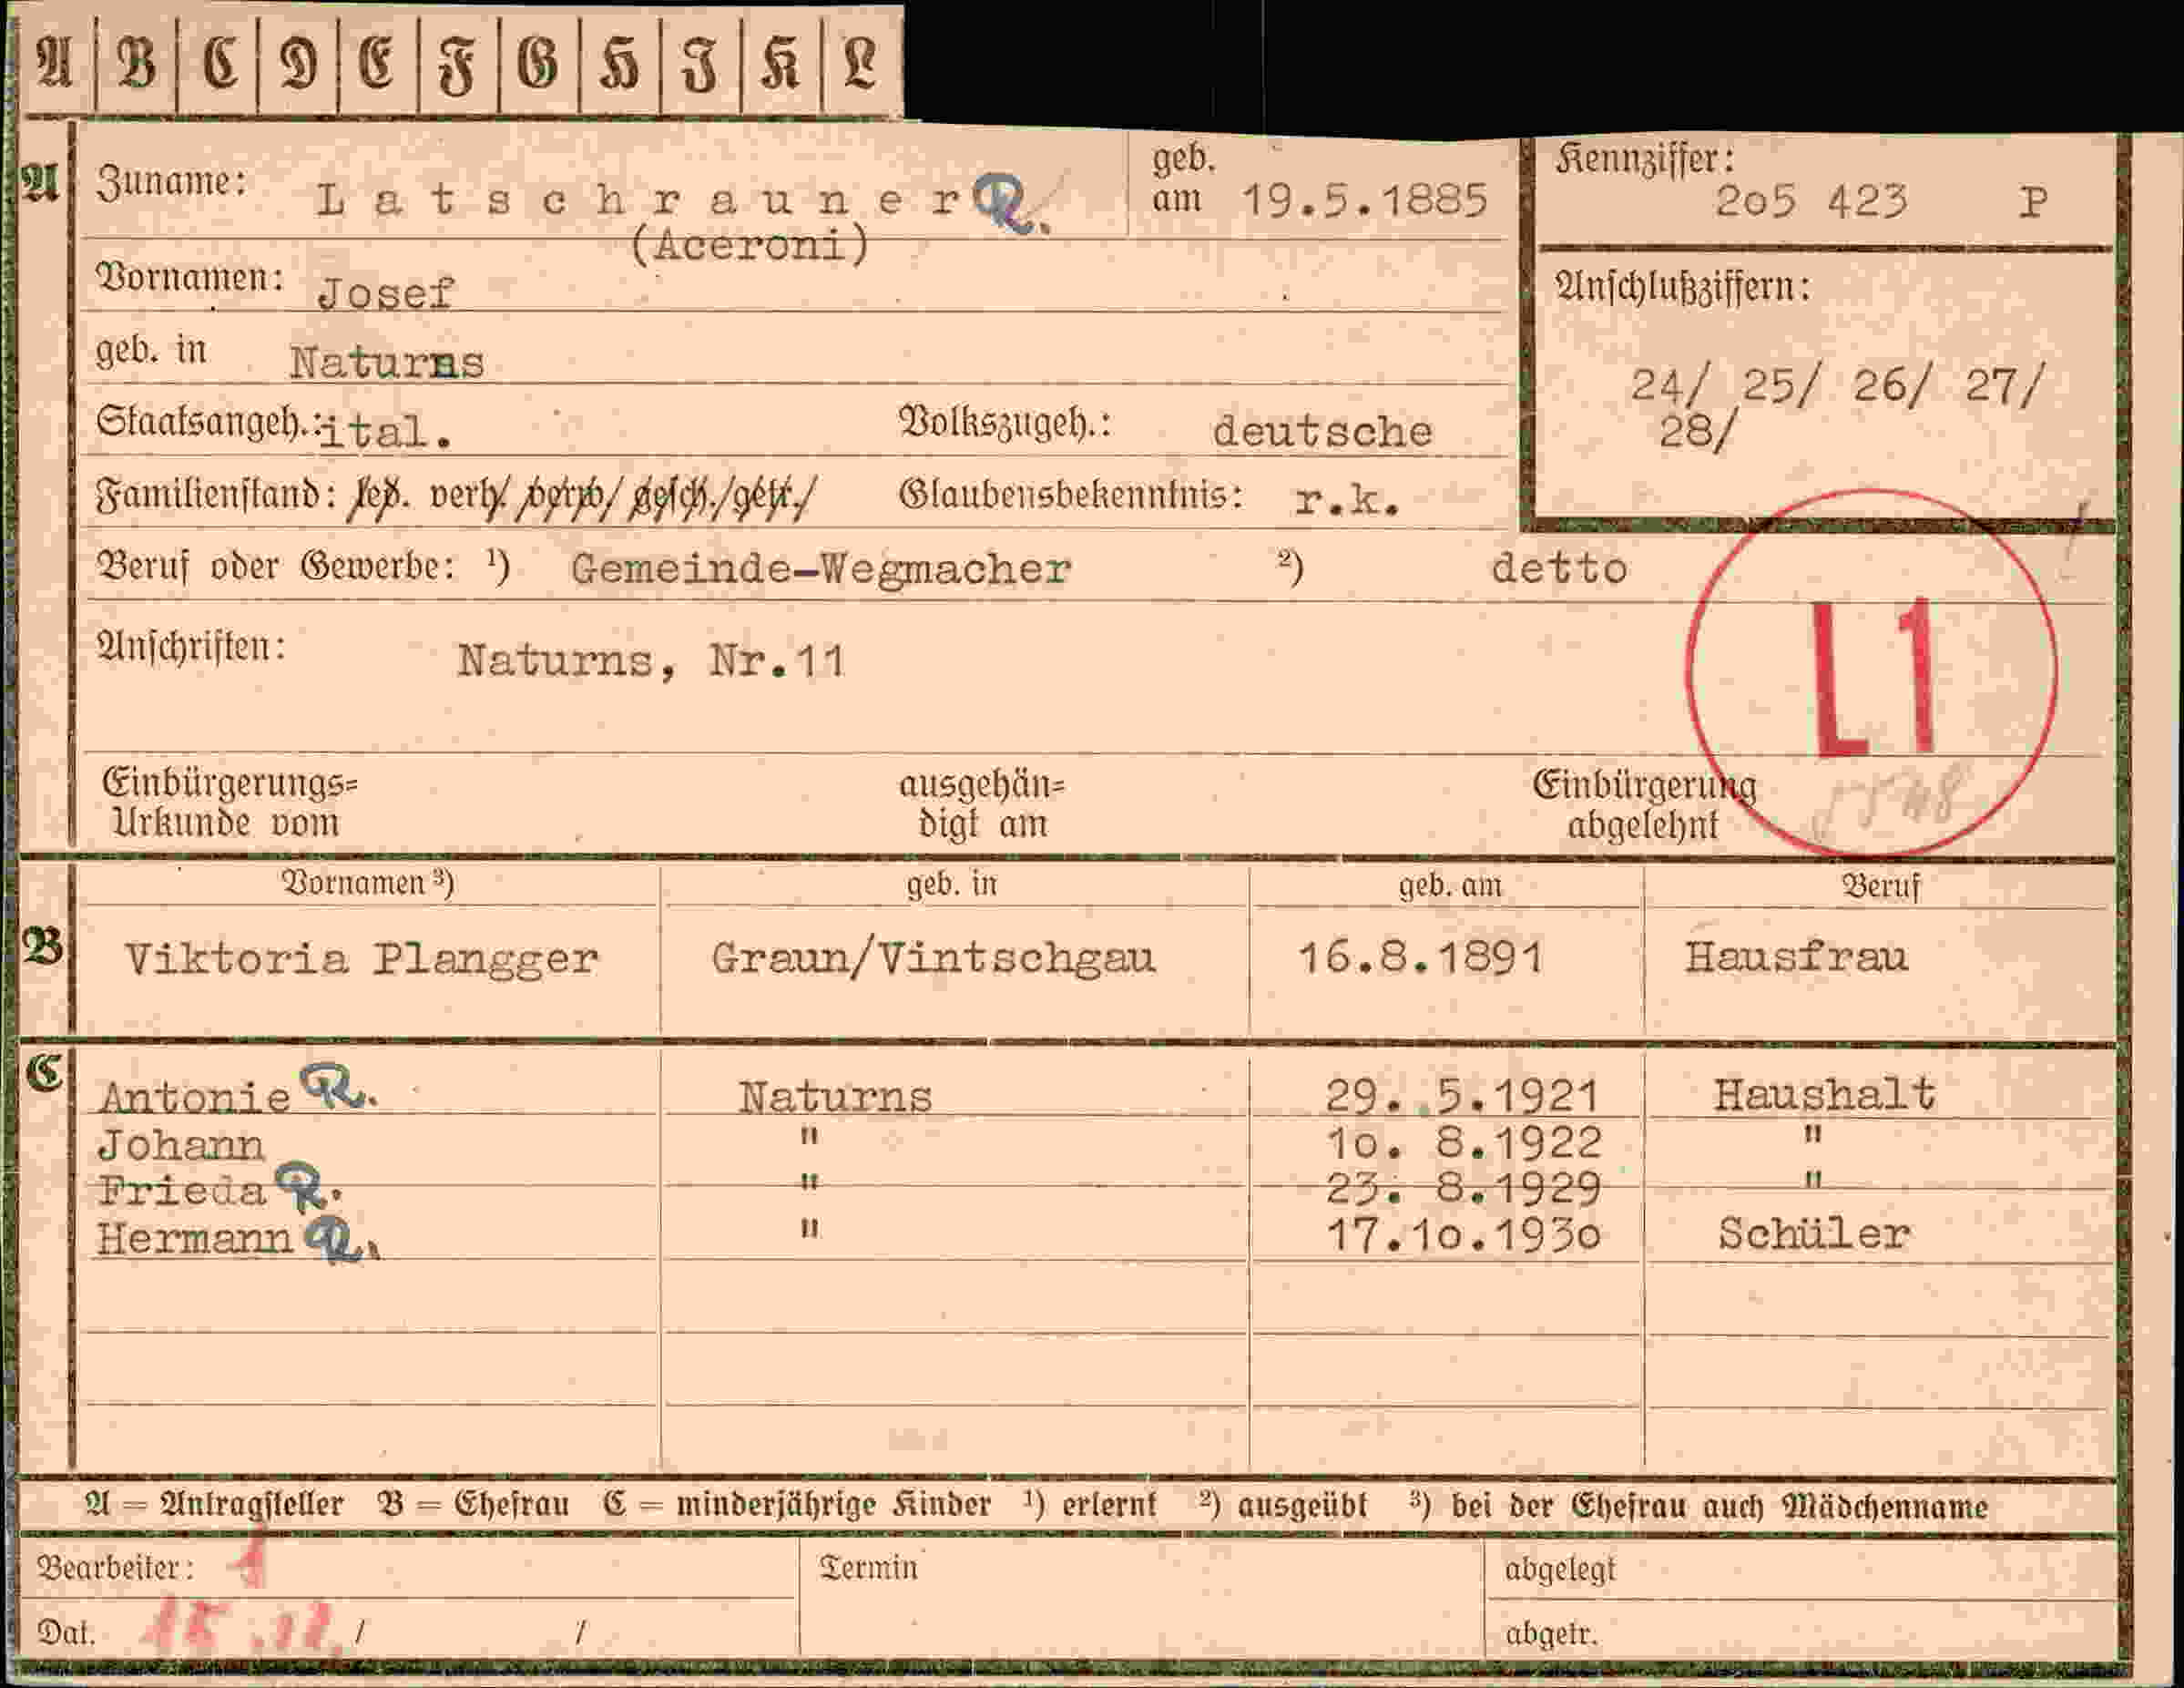 A B C D E F G H I K L
A Zuname: Latschrauner R. geb. am 19.5.1885 Kennziffer: 2o5 423 P
(Aceroni)
Vornamen: Josef Anschlußziffern:
geb. in Naturns 24/ 25/ 26/ 27/
Staatsangeh.: ital. Volkszugeh.: deutsche 28/
Familienstand: led. verh. verw/ gesch./getr./ Glaubensbekenntnis: r.k.
Beruf oder Gewerbe: ¹) Gemeinde-Wegmacher ²) detto
Anschriften: Naturns, Nr.11 L1
Einbürgerungs= ausgehän= Einbürgerung
Urkunde vom digt am abgelehnt
Vornamen ³) geb. in geb. am Beruf
B Viktoria Plangger Graun/Vintschgau 16.8.1891 Hausfrau
C Antonie R. Naturns 29. 5.1921 Haushalt
Johann " 1o. 8.1922 "
Frieda R. " 23. 8.1929 "
Hermann R. " 17.1o.193o Schüler
A = Antragsteller B = Ehefrau C = minderjährige Kinder ¹) erlernt ²) ausgeübt ³) bei der Ehefrau auch Mädchenname
Bearbeiter: 1 Termin abgelegt
Dat. 15.11. / / abgetr.